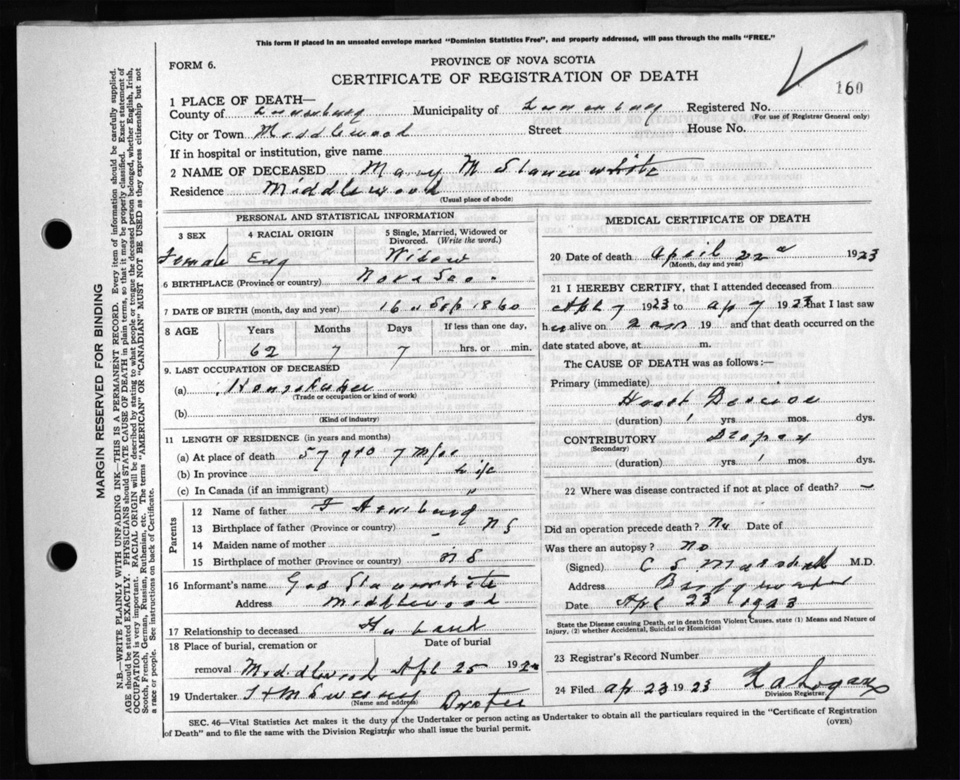 This form if placed in an unsealed envelope marked "Dominion Statistics Free", and properly addressed, will pass through the mails "FREE."
FORM 6.
PROVINCE OF NOVA SCOTIA
CERTIFICATE OF REGISTRATION OF DEATH
160
1 PLACE OF DEATH—
County of Lunenburg Municipality of Lunenburg Registered No.
(For use of Registrar General only)
City or Town Middlewood Street House No.
If in hospital or institution, give name
2 NAME OF DECEASED Mary M
Residence Middlewood
(Usual place of abode)
PERSONAL AND STATISTICAL INFORMATION
3 SEX 4 RACIAL ORIGIN 5 Single, Married, Widowed or Divorced. (Write the word.)
Female Eng Widow
6 BIRTHPLACE (Province or country) Nova Sco
7 DATE OF BIRTH (month, day and year) 16 Sep 1860
8 AGE Years Months Days If less than one day,
62 7 7 hrs. or min.
9. LAST OCCUPATION OF DECEASED
(a)
(Trade or occupation or kind of work)
(b)
(Kind of industry)
11 LENGTH OF RESIDENCE (in years and months)
(a) At place of death 57 yrs 7 mos
(b) In province life
(c) In Canada (if an immigrant) "
Parents
12 Name of father
13 Birthplace of father (Province or country) N S
14 Maiden name of mother -
15 Birthplace of mother (Province or country) N S
16 Informant's name Geo
Address Middlewood
17 Relationship to deceased Husband
18 Place of burial, cremation or Date of burial
removal Middlewood Apl 25 192
19 Undertaker
(Name and address)
MEDICAL CERTIFICATE OF DEATH
20 Date of death April 22 1923
(Month, day and year)
21 I HEREBY CERTIFY, that I attended deceased from
Apl 7 1923 to ap 7 1923 that I last saw
her alive on 19 and that death occurred on the
date stated above, at m.
The CAUSE OF DEATH was as follows:—
Primary (immediate)
Heart Disease
(duration) 1 yrs mos. dys.
CONTRIBUTORY Dropsy
(Secondary)
(duration) yrs 1 mos. dys.
22 Where was disease contracted if not at place of death? —
Did an operation precede death? No Date of
Was there an autopsy? no
(Signed) C S Marshall M.D.
Address Bridgewater
Date Apl 23 1923
State the Disease causing Death, or in death from Violent Causes, state (1) Means and Nature of Injury, (2) whether Accidental, Suicidal or Homicidal
23 Registrar's Record Number
24 Filed ap 23 1923 Logan
Division Registrar
SEC. 46—Vital Statistics Act makes it the duty of the Undertaker or person acting as Undertaker to obtain all the particulars required in the "Certificate of Registration
of Death" and to file the same with the Division Registrar who shall issue the burial permit.
(OVER)
MARGIN RESERVED FOR BINDING
N.B.—WRITE PLAINLY WITH UNFADING INK—THIS IS A PERMANENT RECORD. Every item of information should be carefully supplied.
AGE should be stated EXACTLY. PHYSICIANS should STATE CAUSE OF DEATH in plain terms, so that it may be properly classified. Exact statement of
OCCUPATION is very important. RACIAL ORIGIN will be described by stating to what people or tongue the deceased person belonged, whether English, Irish,
Scotch, French, German, Russian, Ruthenian, etc. The terms "AMERICAN" OR "CANADIAN" MUST NOT BE USED as they express citizenship but not
a race or people. See instructions on back of Certificate.